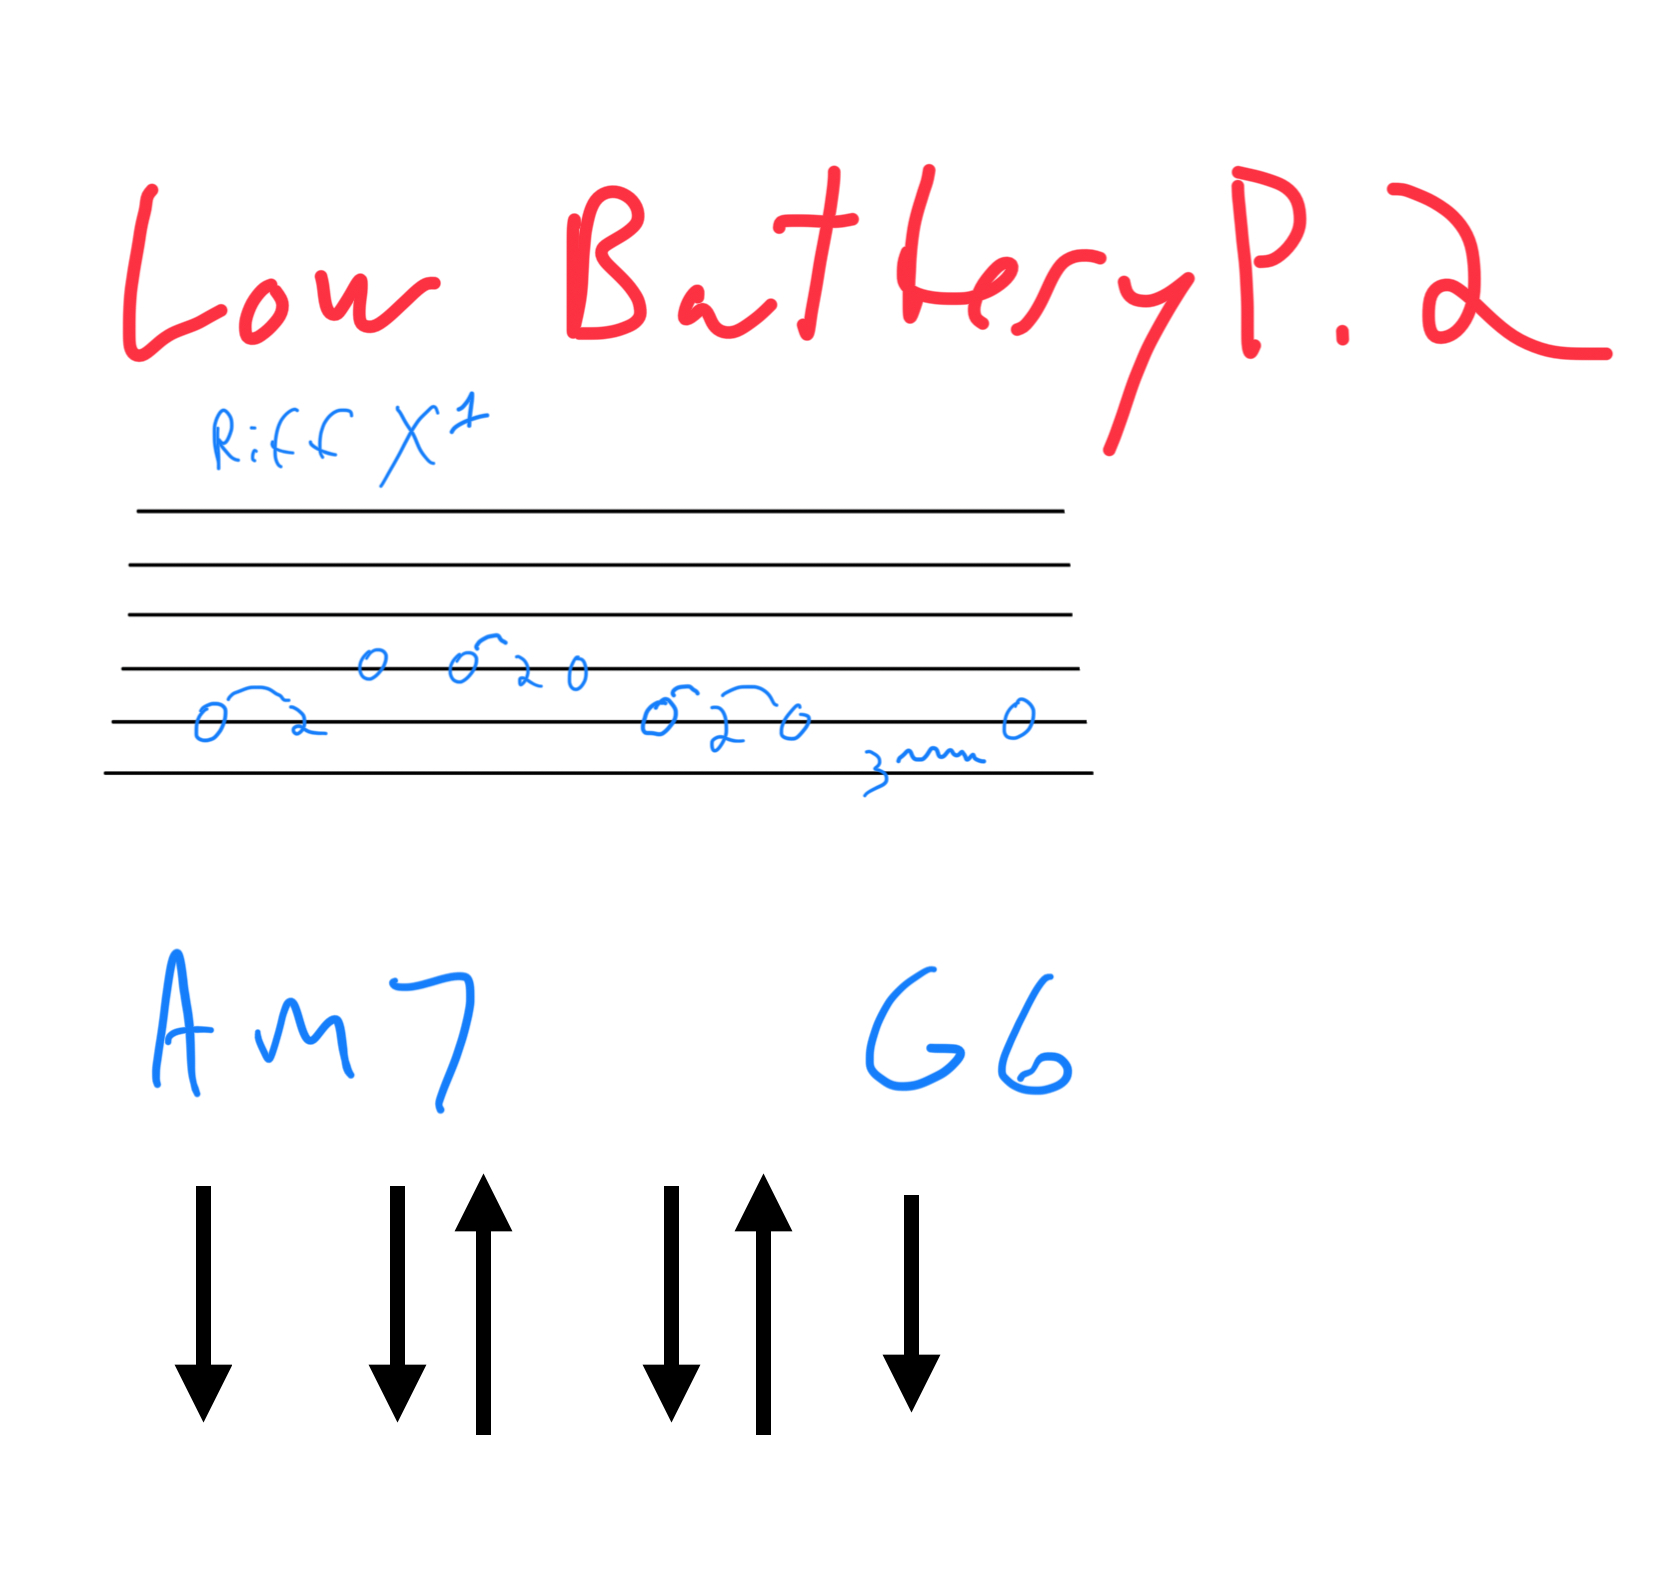 Low Battery P.2
Riff X1
0 0 2 0
0 2 0 2 0 0
3
Am7 G6